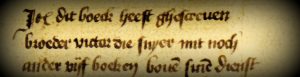 dit boeck heeft ghescreuen
broeder victor die suyer mit noch
ander vijf boeken bouē sinē dienst